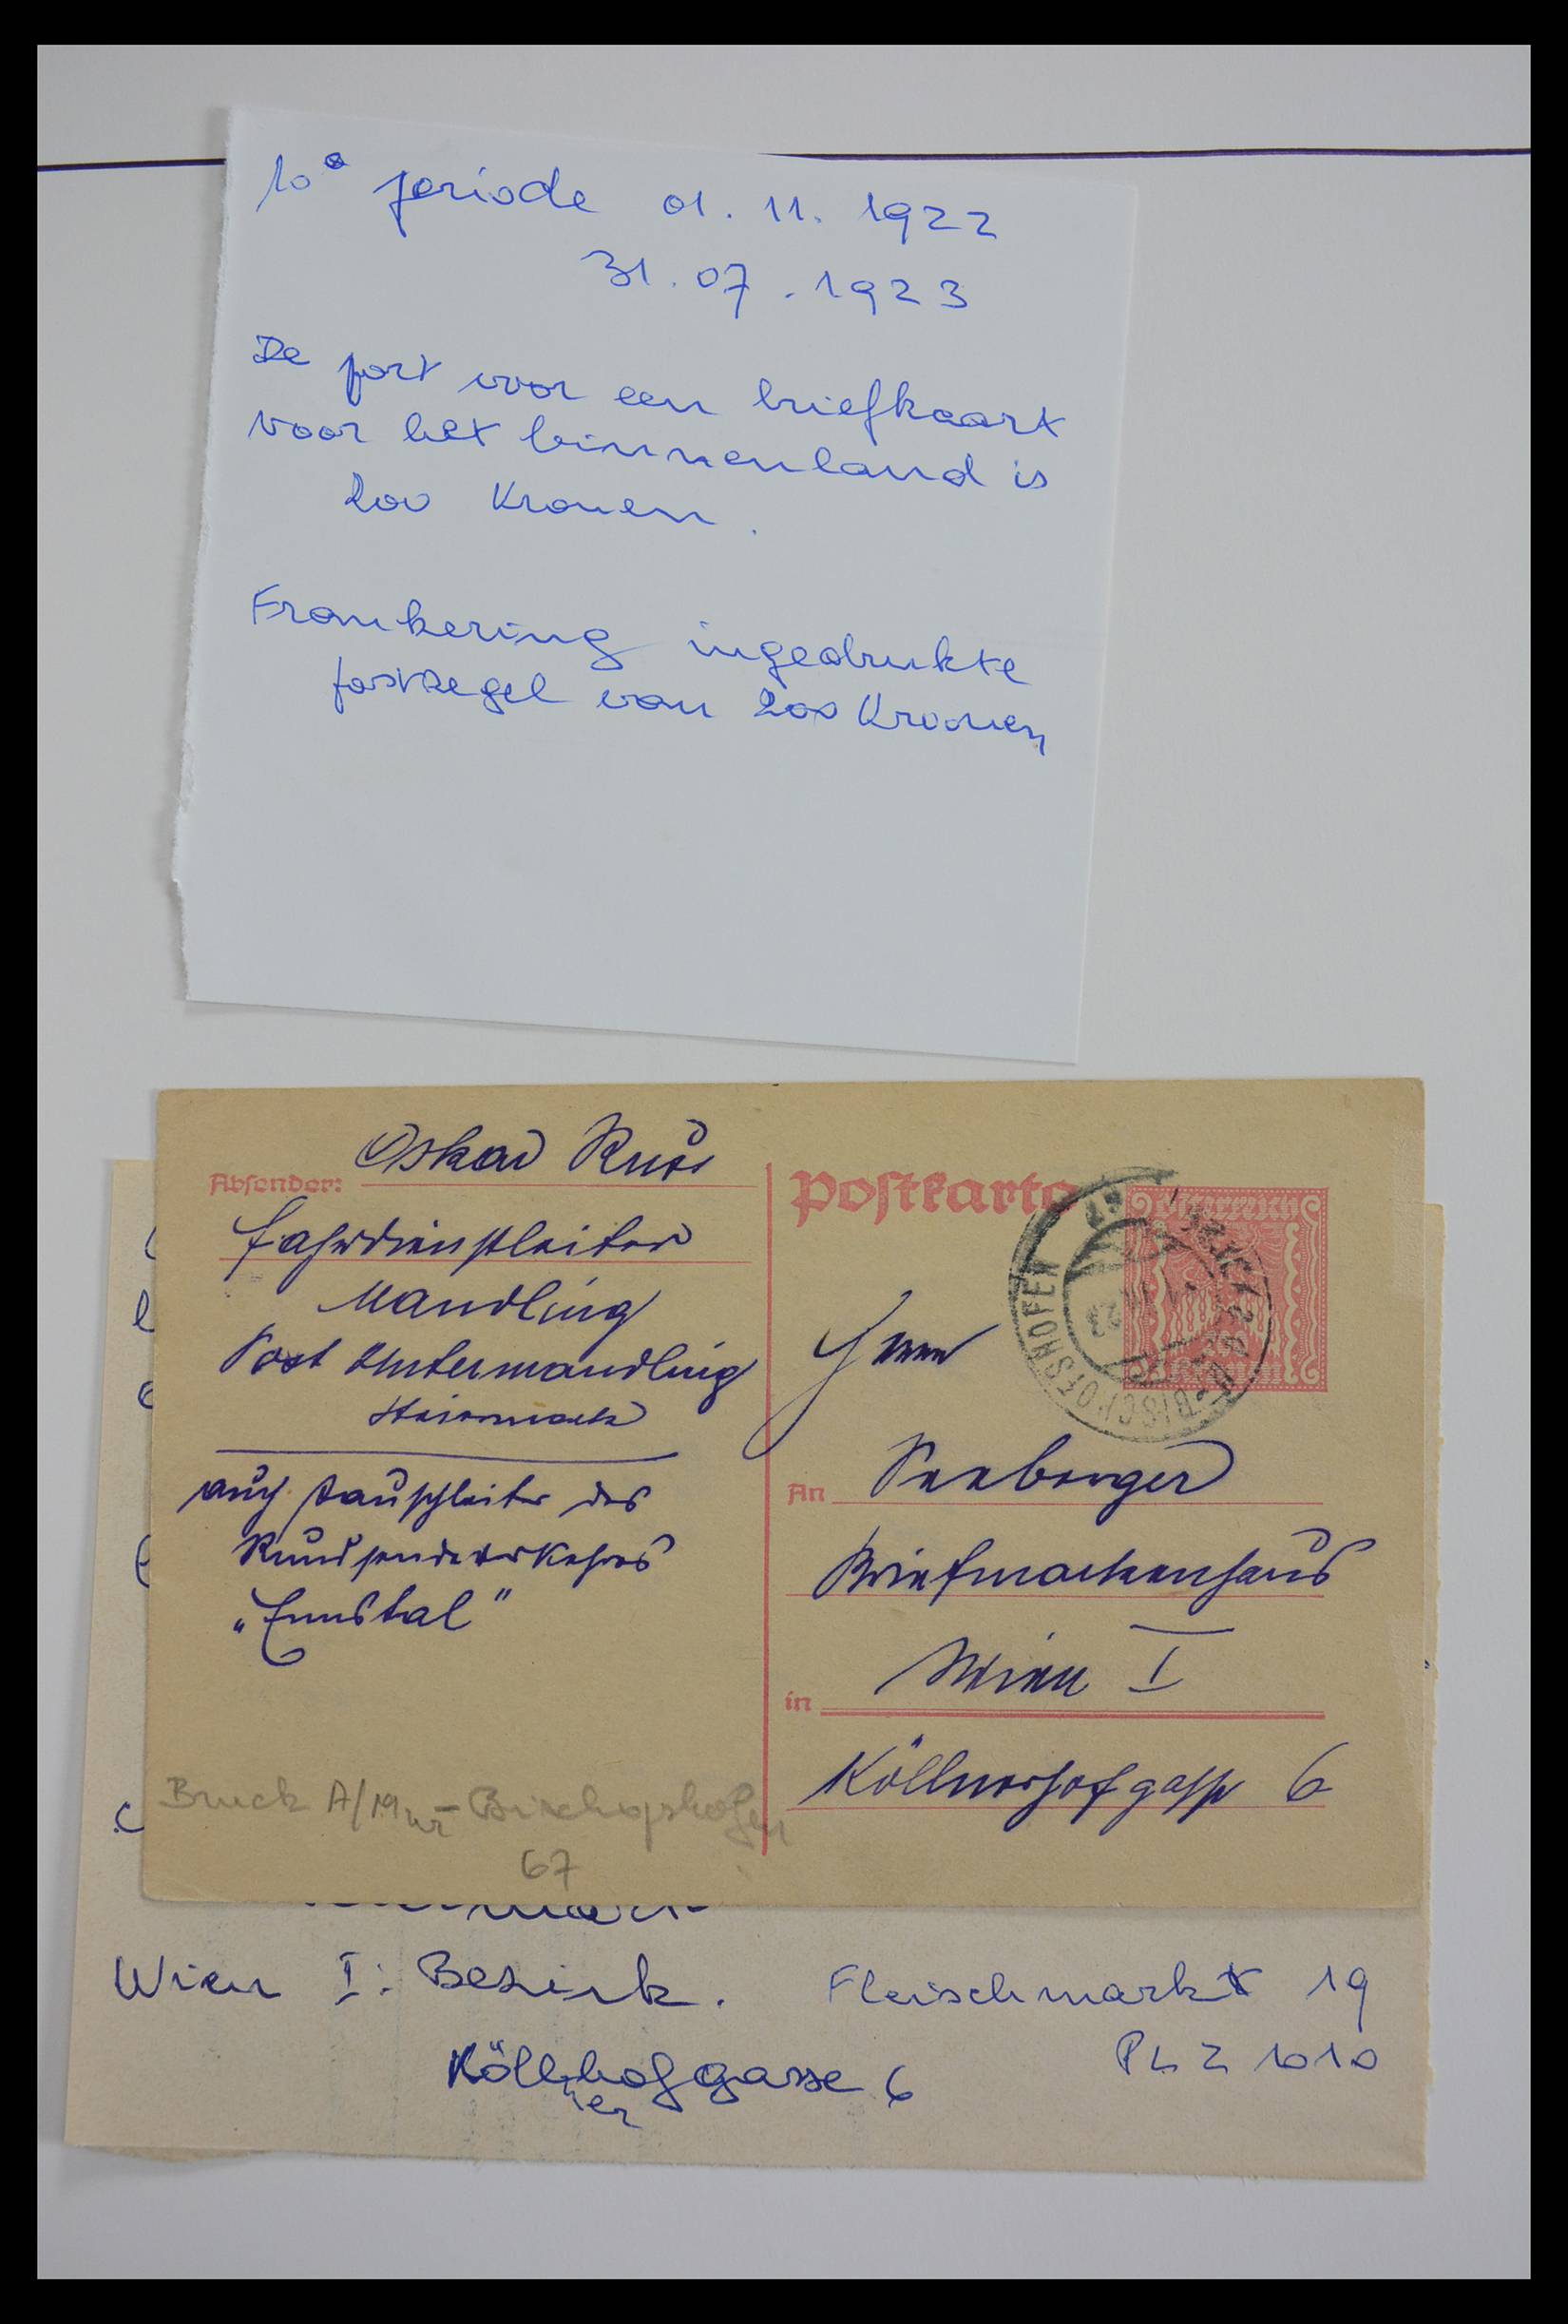 10e periode 01.11.1922
31.07.1923
De port voor een briefkaart
voor het binnenland is
200 Kronen.
Frankering ingedrukte
postzegel van 200 Kronen
Absender: Oskar
Fahrdienstleiter
Mandling
Post Untermandling
Steiermark
auch Tauschleiter des
Rundsendeverkehres
„Ennstal"
Bruck A/Mur - Bischopshofen
67
Postkarte
Österreich
BISCHOFSHOFEN
Herrn
An Seeberger
Briefmarkenhaus
in Wien I
Köllnerhofgasse 6
Wien I. Bezirk. Fleischmarkt 19
PLZ 1010
Köllnerhofgasse 6